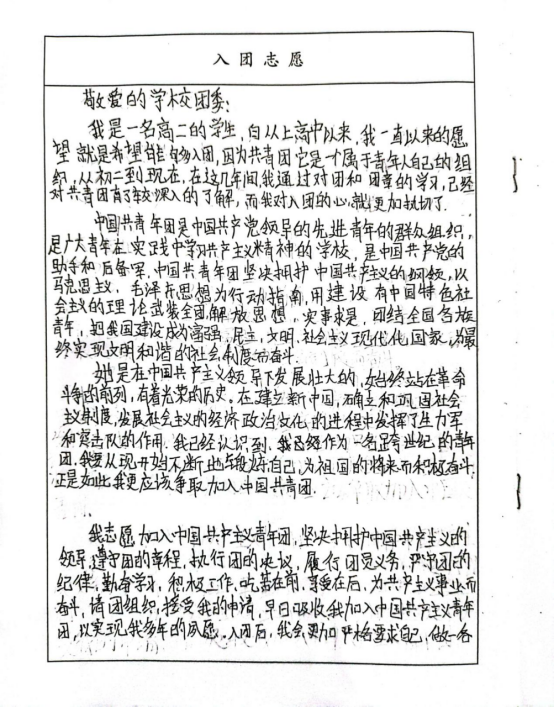 入团志愿
敬爱的学校团委:
我是一名高二的学生,自从上高中以来,我一直以来的愿
望就是希望能够入团,因为共青团它是一个属于青年人自己的组
织,从初二到现在,在这几年间,我通过对团和团章的学习,已经
对共青团有了较深入的了解,而我对入团的心,就更加执切了.
中国共青年团是中国共产党领导的先进青年的群众组织,
是广大青年在实践中学习共产主义精神的学校,是中国共产党的
助手和后备军,中国共青年团坚决拥护中国共产主义的纲领,以
马克思主义、毛泽东思想为行动指南,用建设有中国特色社
会主义的理论武装全团,解放思想,实事求是,团结全国各族
青年,把我国建设成为富强,民主,文明,社会主义现代化国家,为最
终实现文明和谐的社会制度而奋斗.
她是在中国共产主义领导下发展壮大的,始终站在革命
斗争的前列,有着光荣的历史。在建立新中国,确立和巩固社会
主义制度,发展社会主义的经济政治文化的进程中发挥了生力军
和突击队的作用.我已经认识到,我已经作为一名跨世纪的青年
团,我要从现开始不断地锻炼自己,为祖国的将来而积极奋斗.
正是如此我更应该争取加入中国共青团.
我志愿加入中国共产主义青年团,坚决拥护中国共产主义的
领导,遵守团的章程,执行团的决议,履行团员义务,严守团的
纪律,勤奋学习,积极工作,吃苦在前,享受在后,为共产主义事业而
奋斗,请团组织,接受我的申请,早日吸收我加入中国共产主义青年
团,以实现我多年的夙愿.入团后,我会更加严格要求自己,做一名